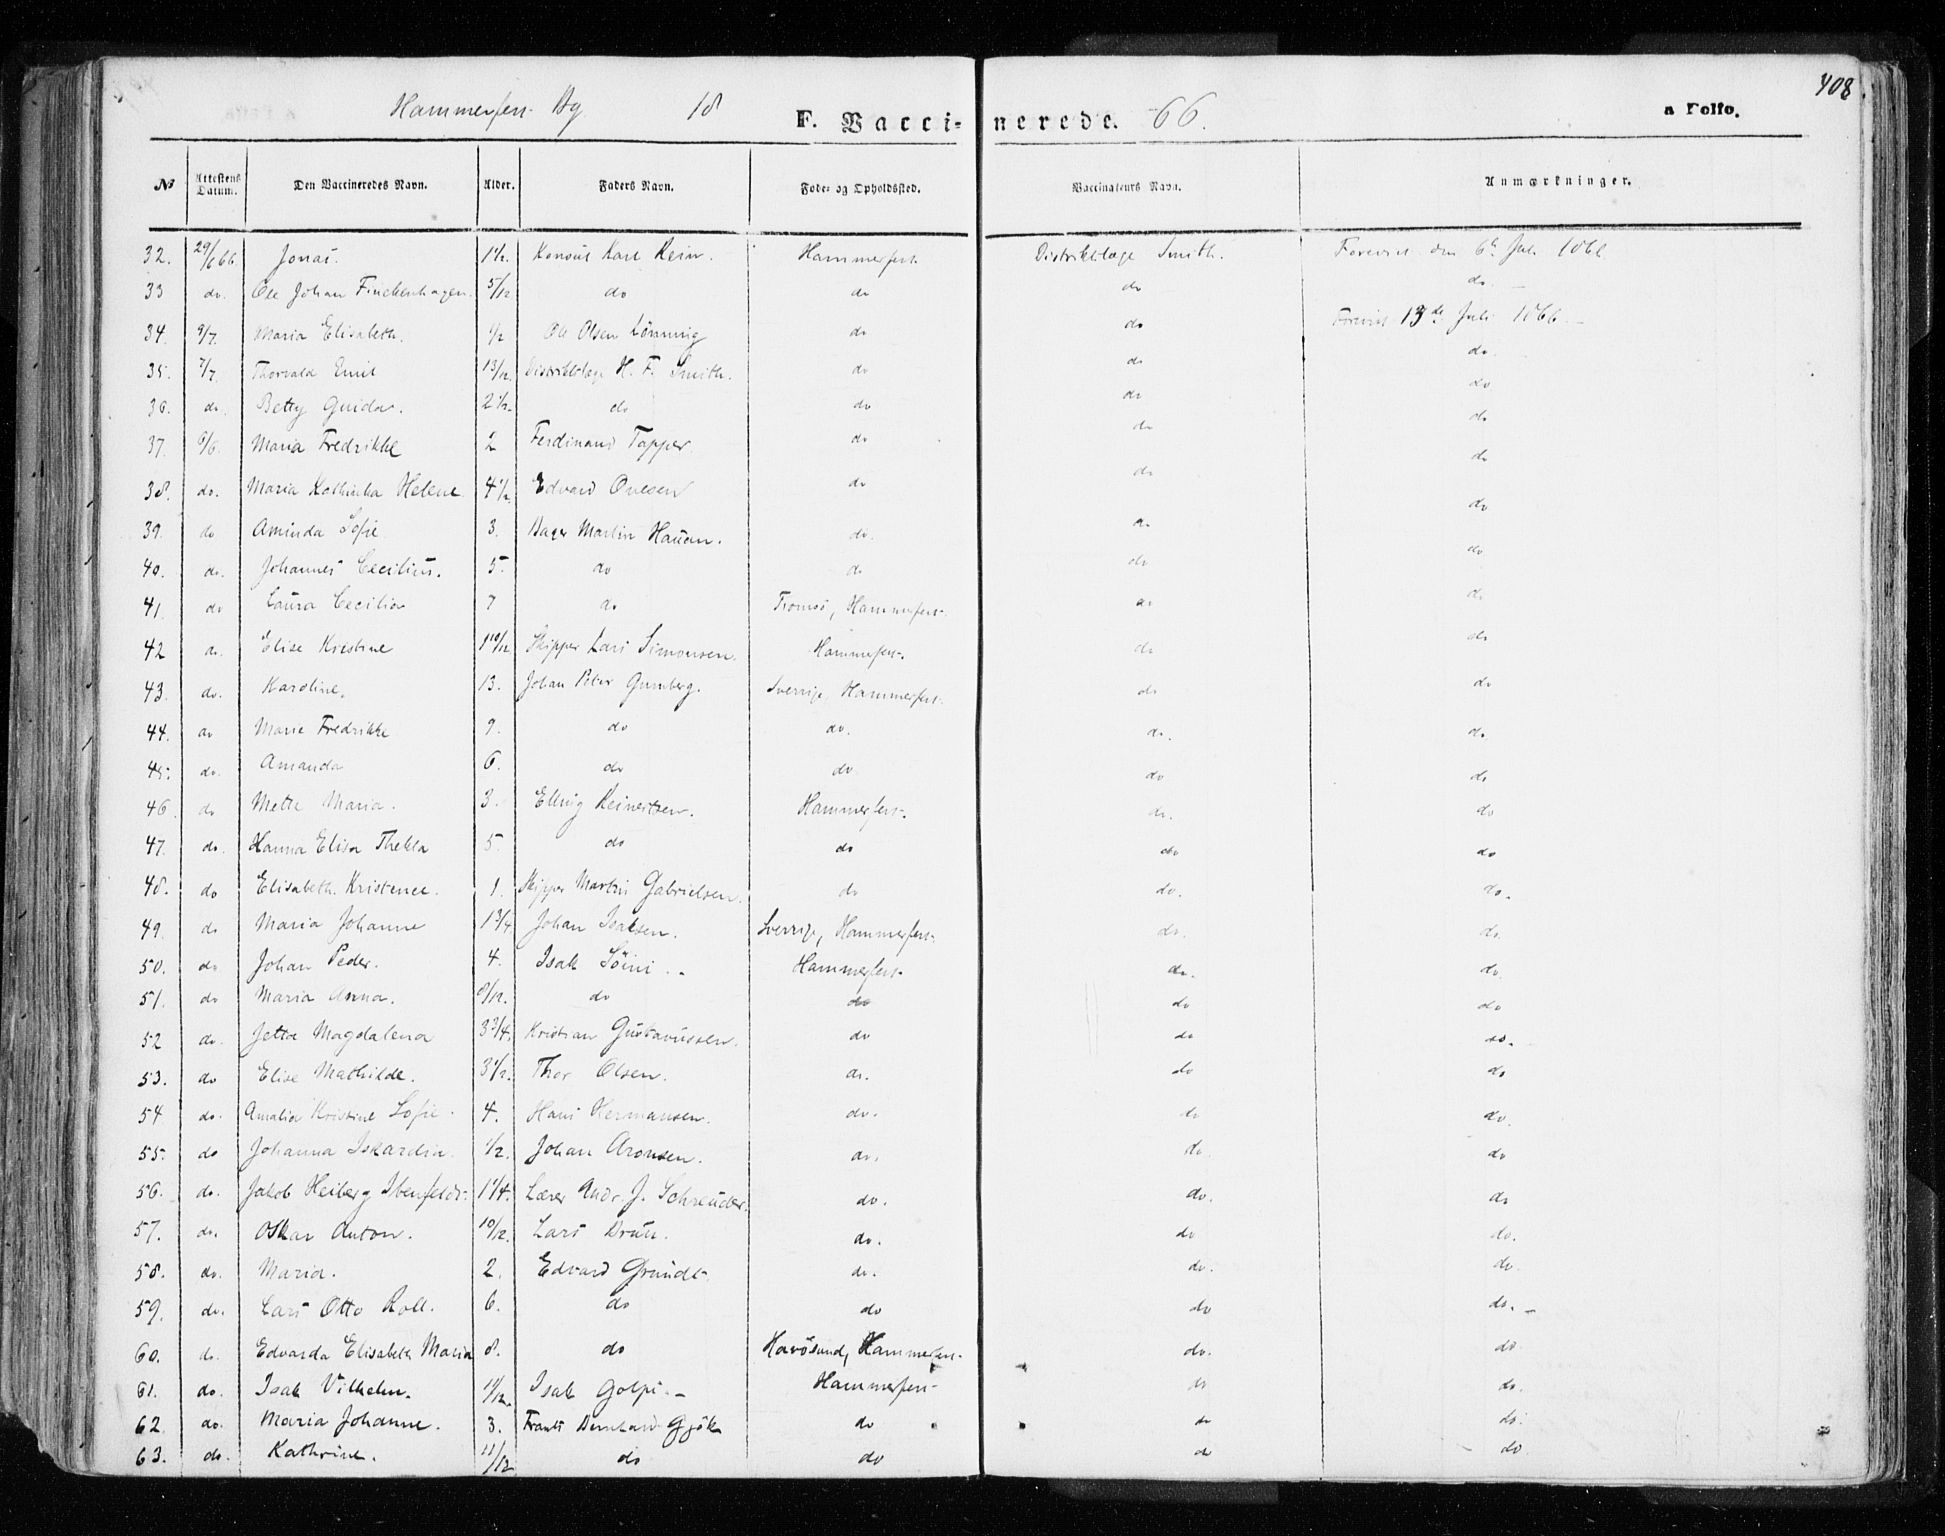 408
Hammerfest By 18 F. Vacci- nerede. 66. a Folio.
No Attestens Datum. Den Vaccineredes Navn. Alder. Faders Navn. Føde- og Opholdssted. Vaccinateurs Navn. Anmærkninger.
32. 29/6 66 Jonas. 1 1/2. Konsul Karl Rein. Hammerfest. Distriktslæge Smith. Forevist den 6te Juli 1866
33 do. Ole Johan Finckenhagen. 5/12 do do do do.
34. 9/7. Maria Elisabeth. 1/2 Ole Olsen Lönning do do Forevist 13de Juli 1866.
35. 7/7. Thorvald Emil 13/12. Distriktslæge H. F. Smith. do do do.
36. do. Betty Guida. 2 1/2. do do do do
37. 6/6. Maria Fredrikke 2 Ferdinand Tapper do do do
38. do. Maria Kathinka Helene 4 1/2 Edvard Ovesen do do do
39. do Aminda Sofie 3. Bager Martin Hauan. do. do do
40. do. Johannes Cecilius. 5. do do do do
41. do Laura Cecilia 7 do Tromsö, Hammerfest. do do
42 do. Elise Kristine 1 10/12 Skipper Lars Simonsen. Hammerfest. do do
43. do. Karoline. 13. Johan Peter Gumberg. Sverrige, Hammerfest. do do
44. do Marie Fredrikke 9. do do. do. do
45. do. Amanda 6. do do do do
46. do Mette Maria. 3. Elling Reinertsen. Hammerfest. do. do
47. do. Hanna Elisa Thekla 5. do do do do
48. do Elisabeth Kristence. 1. Skipper Martin Gabrielsen. do do. do.
49. do Maria Johanne 1 3/4 Johan Isaksen. Sverrige, Hammerfest. do. do.
50. do Johan Peder. 4. Isak Söini. Hammerfest. do. do.
51. do Maria Anna. 8/12. do do do do
52 do. Jetta Magdalena 3 3/4. Kristian Gustavussen. do do do.
53. do Elise Mathilde. 3 1/2. Thor Olsen. do. do do
54 do. Amalia Kristine Sofie. 4. Hans Hermansen. do. do do.
55. do Johanna Iskardia. 1/2. Johan Aronsen. do. do. do
56. do. Jakob Heiberg Ibenfeldt. 1 1/4. Lærer Andr. J. Schreuder. do. do. do
57. do. Oskar Anton. 10/12. Lars Bruu. do. do do.
58. do. Maria. 2. Edvard Grundt. do. do. do.
59. do. Lars Otto Roll. 6. do do do do.
60. do. Edvarda Elisabeth Maria 8. do Havösund, Hammerfest. do. do
61. do. Isak Vilhelm. 11/12. Isak Golpi. Hammerfest do do.
62. do. Maria Johanne. 3. Frants Bernhard Gjök do do do.
63. do. Kathrine. 11/12 do do do do.